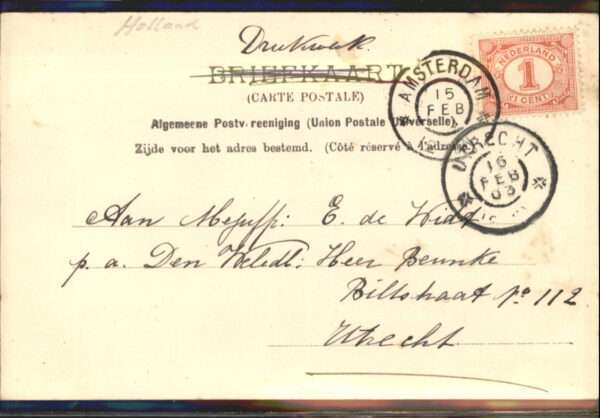 Holland
Drukwerk.
BRIEFKAART
(CARTE POSTALE)
Algemeene Postv reeniging (Union Postale Universelle).
Zijde voor het adres bestemd. (Côté réservé à l'adresse.)
NEDERLAND
1
CENT
AMSTERDAM
15
FEB
UTRECHT
16
FEB
03
Aan Mejuff: E. de Widt
p. a. Den Weledl: Heer Beunke
Biltstraat No 112
Utrecht